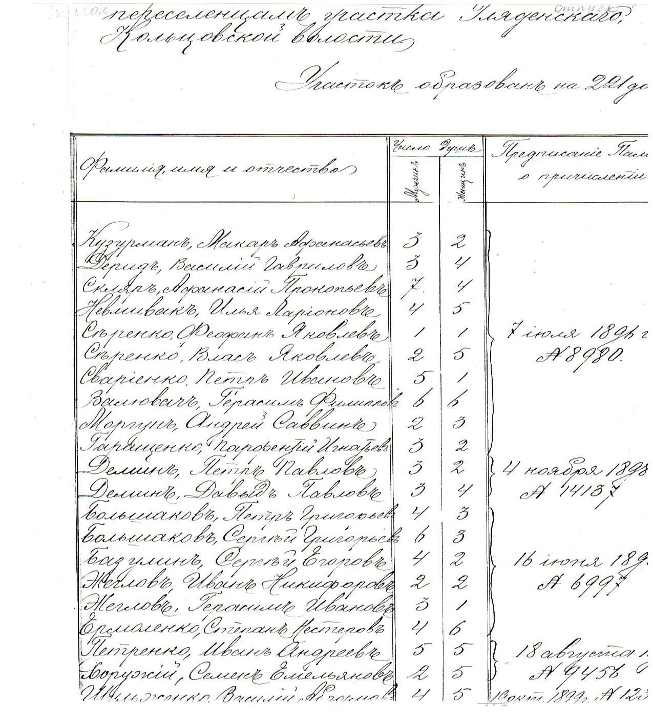 переселенцамъ участка Уляденскаго,
Кольцовской волости
Участокъ образованъ на 221
Фамилія, имя и отчество
Число душъ
Мужчинъ
Женщинъ
Предписаніе
о причисленіи
Кузурманъ, Макаръ Афанасьевъ 3 2
Деридъ, Василій Гавриловъ 3 4
Скляръ, Афанасій Прокопьевъ 7. 4
Невмивакъ, Илья Ларіоновъ 4 5
Сѣренко, Феофанъ Яковлевъ 1 1
7 іюля
Сѣренко, Власъ Яковлевъ 2 5
№ 8980.
Сваріенко, Петръ Ивановъ 5 1
Герасимъ Филиповъ 6 6
Моргунъ, Андрей Саввинъ 2 3
Гаращенко, Парфентій Игнатьевъ 3 2
Деминъ, Петръ Павловъ 3 2
4 ноября
Деминъ, Давыдъ Павловъ 3 4
№ 14137
Большаковъ, Петръ Григорьевъ 4 3
Большаковъ, Сергѣй Григорьевъ 6 3
Базулинъ, Сергѣй Егоровъ 4 2
16 іюня
Жегловъ, Иванъ Никифоровъ 2 2
№ 6997
Жегловъ, Герасимъ Ивановъ 3 1
Ермоленко, Степанъ Нестеровъ 4 6
Петренко, Иванъ Андреевъ 5 5
18 августа
Хоружій, Семенъ Емельяновъ 2 5
№ 9456
Василій 4 5
окт 1899. №